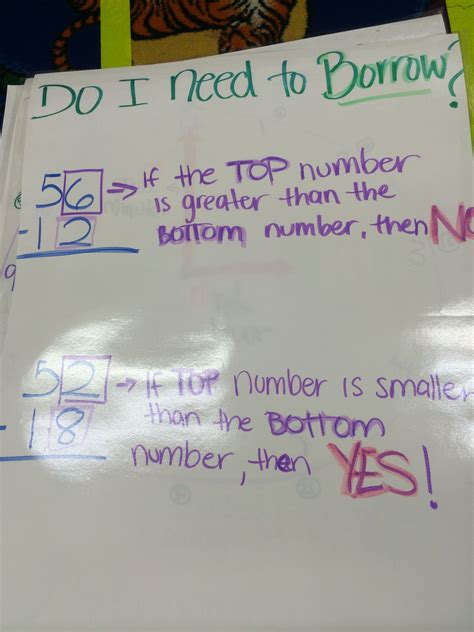 Do I need to Borrow?
56 → If the TOP number
is greater than the
- 12 BOTTOM number, then NO
52 → If TOP number is smaller
than the BOTTOM
- 18 number, then YES!
9